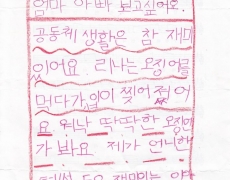 엄마 아빠 보고싶어요.
공동체 생활은 참 재미
있어요. 리나는 오징어를
먹다가 입이 찢어 졌어
요. 워낙 딱딱한 오징어
가 봐요. 제가 언니한